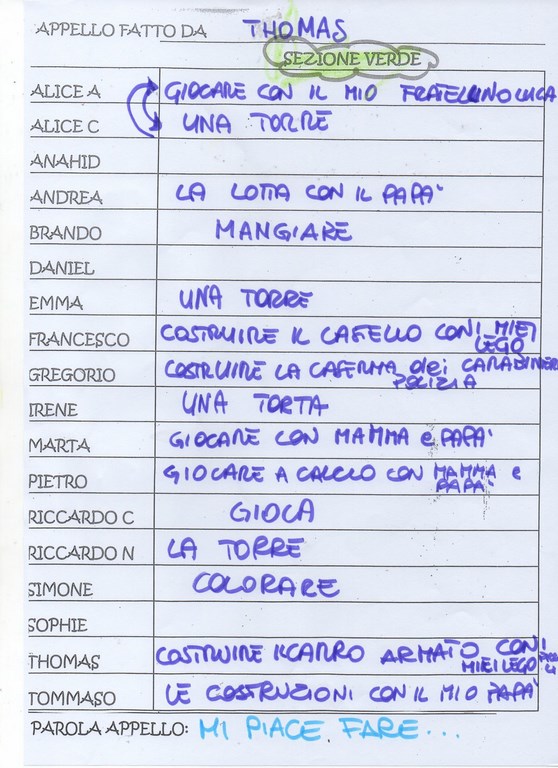 APPELLO FATTO DA THOMAS
SEZIONE VERDE
ALICE A GIOCARE CON IL MIO FRATELLINO LUCA
ALICE C UNA TORRE
ANAHID
ANDREA LA LOTTA CON IL PAPA'
BRANDO MANGIARE
DANIEL
EMMA UNA TORRE
FRANCESCO COSTRUIRE IL CASTELLO CON I MIEI
LEGO
GREGORIO COSTRUIRE LA CASERMA dei CARABINIERI
POLIZIA
IRENE UNA TORTA
MARTA GIOCARE CON MAMMA e PAPA'
PIETRO GIOCARE A CALCIO CON MAMMA e
PAPA'
RICCARDO C GIOCA
RICCARDO N LA TORRE
SIMONE COLORARE
SOPHIE
THOMAS COSTRUIRE IL CARRO ARMATO CON I
MIEI LEGO
TOMMASO LE COSTRUZIONI CON IL MIO PAPA'
PAROLA APPELLO: MI PIACE FARE...